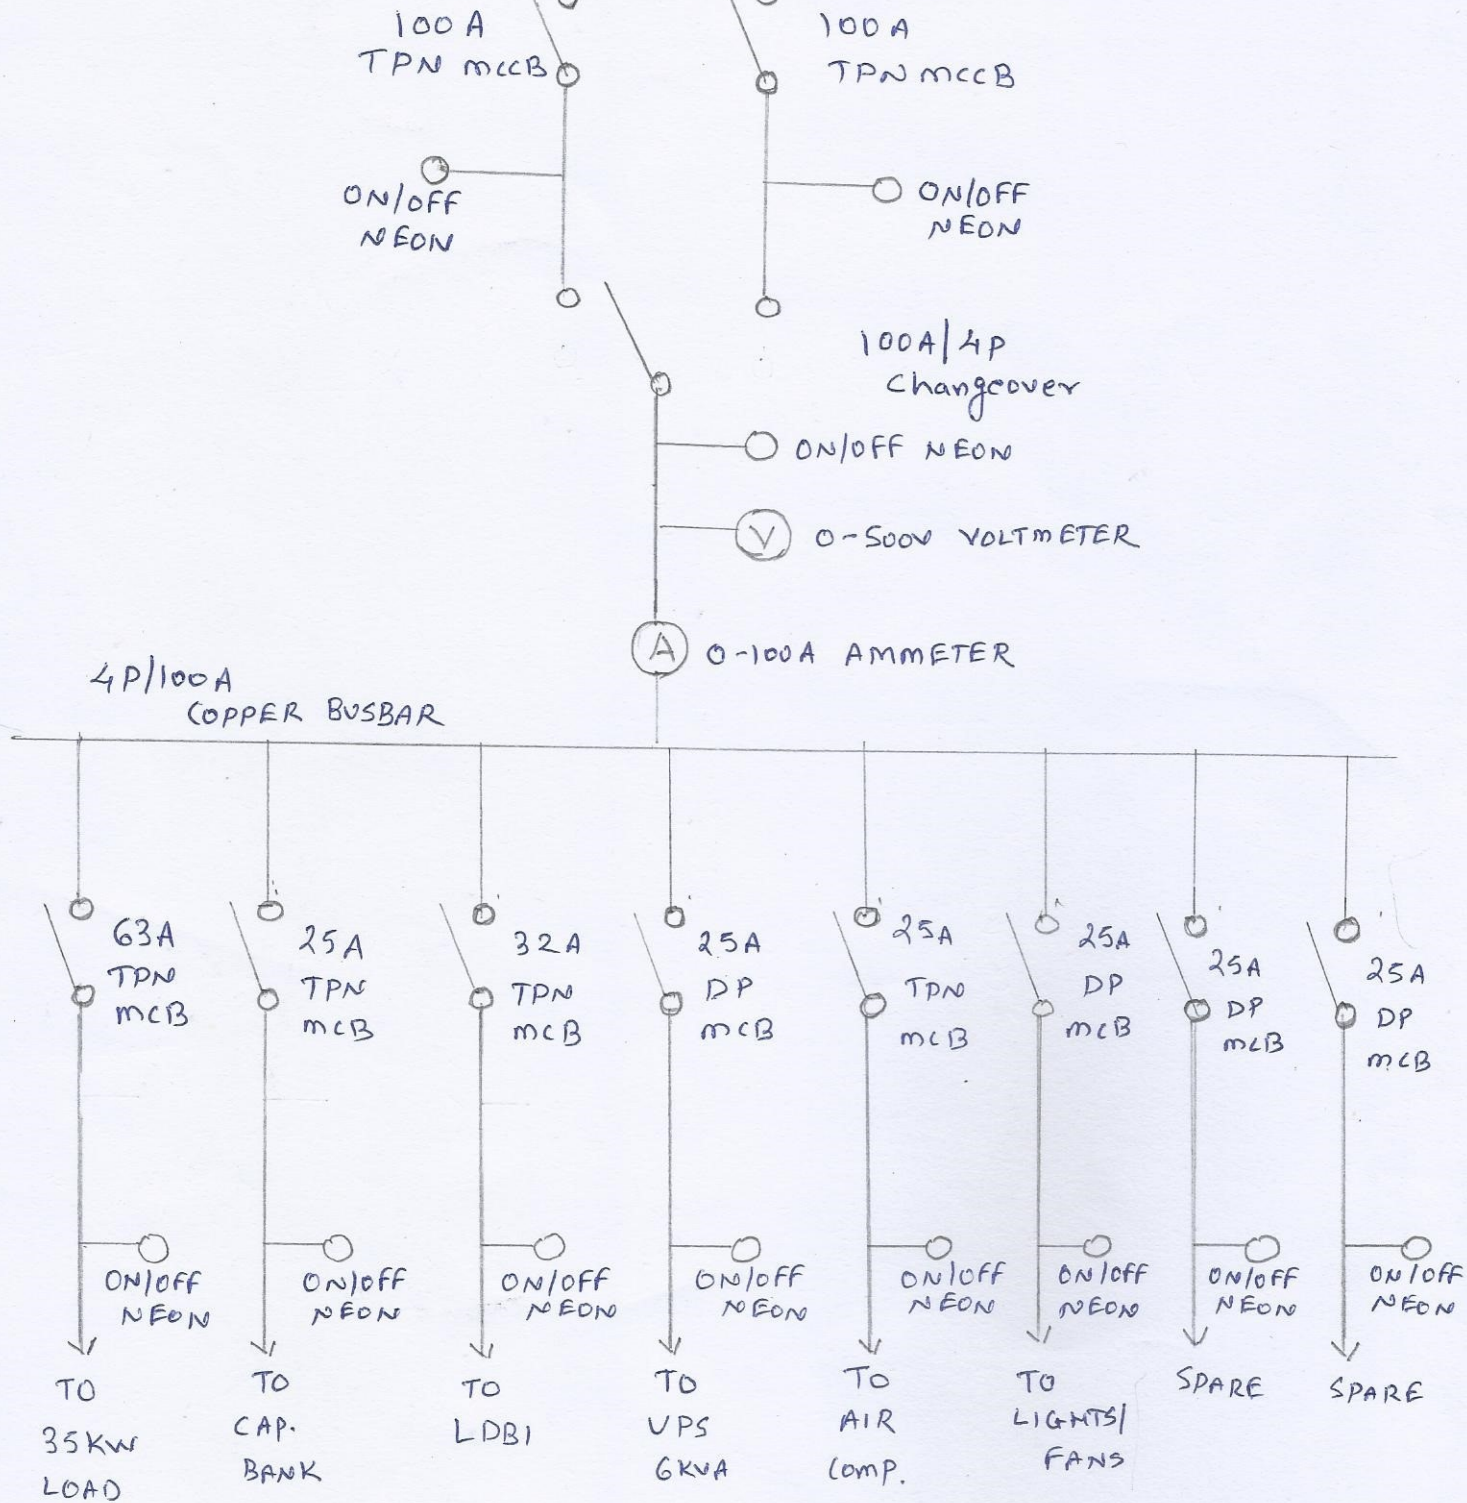 100A
TPN MCCB
100A
TPN MCCB
ON/OFF
NEON
ON/OFF
NEON
100A/4P
Changeover
ON/OFF NEON
V
0-500V VOLTMETER
A
0-100A AMMETER
4P/100A
COPPER BUSBAR
63A
TPN
MCB
25A
TPN
MCB
32A
TPN
MCB
25A
DP
MCB
25A
TPN
MCB
25A
DP
MCB
25A
DP
MCB
25A
DP
MCB
ON/OFF
NEON
ON/OFF
NEON
ON/OFF
NEON
ON/OFF
NEON
ON/OFF
NEON
ON/OFF
NEON
ON/OFF
NEON
ON/OFF
NEON
TO
35KW
LOAD
TO
CAP.
BANK
TO
LDB1
TO
UPS
6KVA
TO
AIR
COMP.
TO
LIGHTS/
FANS
SPARE
SPARE